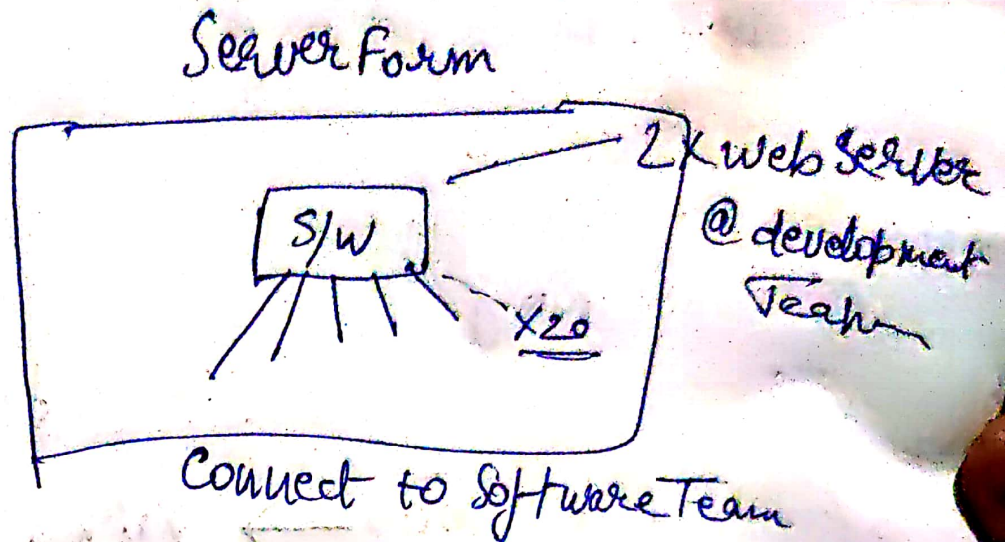 Server Form
2x web Server
@ development
Team
S/W
x20
Connect to Software Team